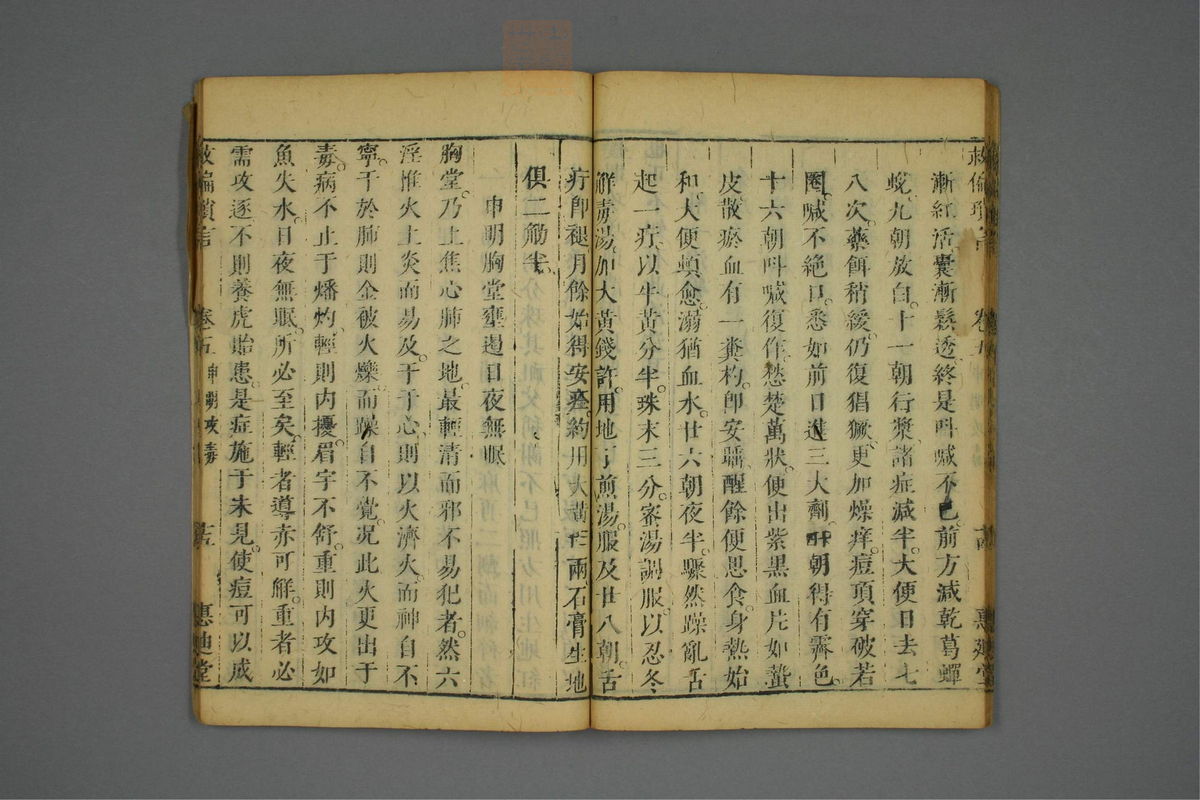 救偏瑣言 卷五 十四 惠迪堂
漸紅活囊漸鬆透終是呌喊不已前方減乾葛蟬
蛻九朝放白十一朝行漿諸症減半大便日去七
八次藥餌稍緩仍復猖獗更加燥痒痘頂穿破若
圈喊不絕口悉如前日進三大劑朝得有霽色
十六朝呌喊復作愁楚萬狀便出紫黑血片如蟄
皮散瘀血有一糞杓卽安臥醒餘便思食身熱始
和大便頓愈溺猶血水廿六朝夜半驟然躁亂舌
起一疔以牛黃分半珠末三分蜜湯調服以忍冬
解毒湯加大黃錢許用地丁煎湯服及廿八朝舌
疔卽褪月餘始得安痊約用大黃兩石膏生地
俱二觔半
申明胸堂壅遏日夜無眠
胸堂乃上焦心肺之地最輕清而邪不易犯者然六
淫惟火上炎而易及于心則以火濟火而神自不
寧干於肺則金被火爍而躁自不覺況此火更出于
毒病不止于燔灼輕則內擾眉宇不舒重則內攻如
魚失水日夜無眠所必至矣輕者導赤可解重者必
需攻逐不則養虎貽患是症施于未見使痘可以成
救偏瑣言 卷五 申明攻毒 十五 惠迪堂